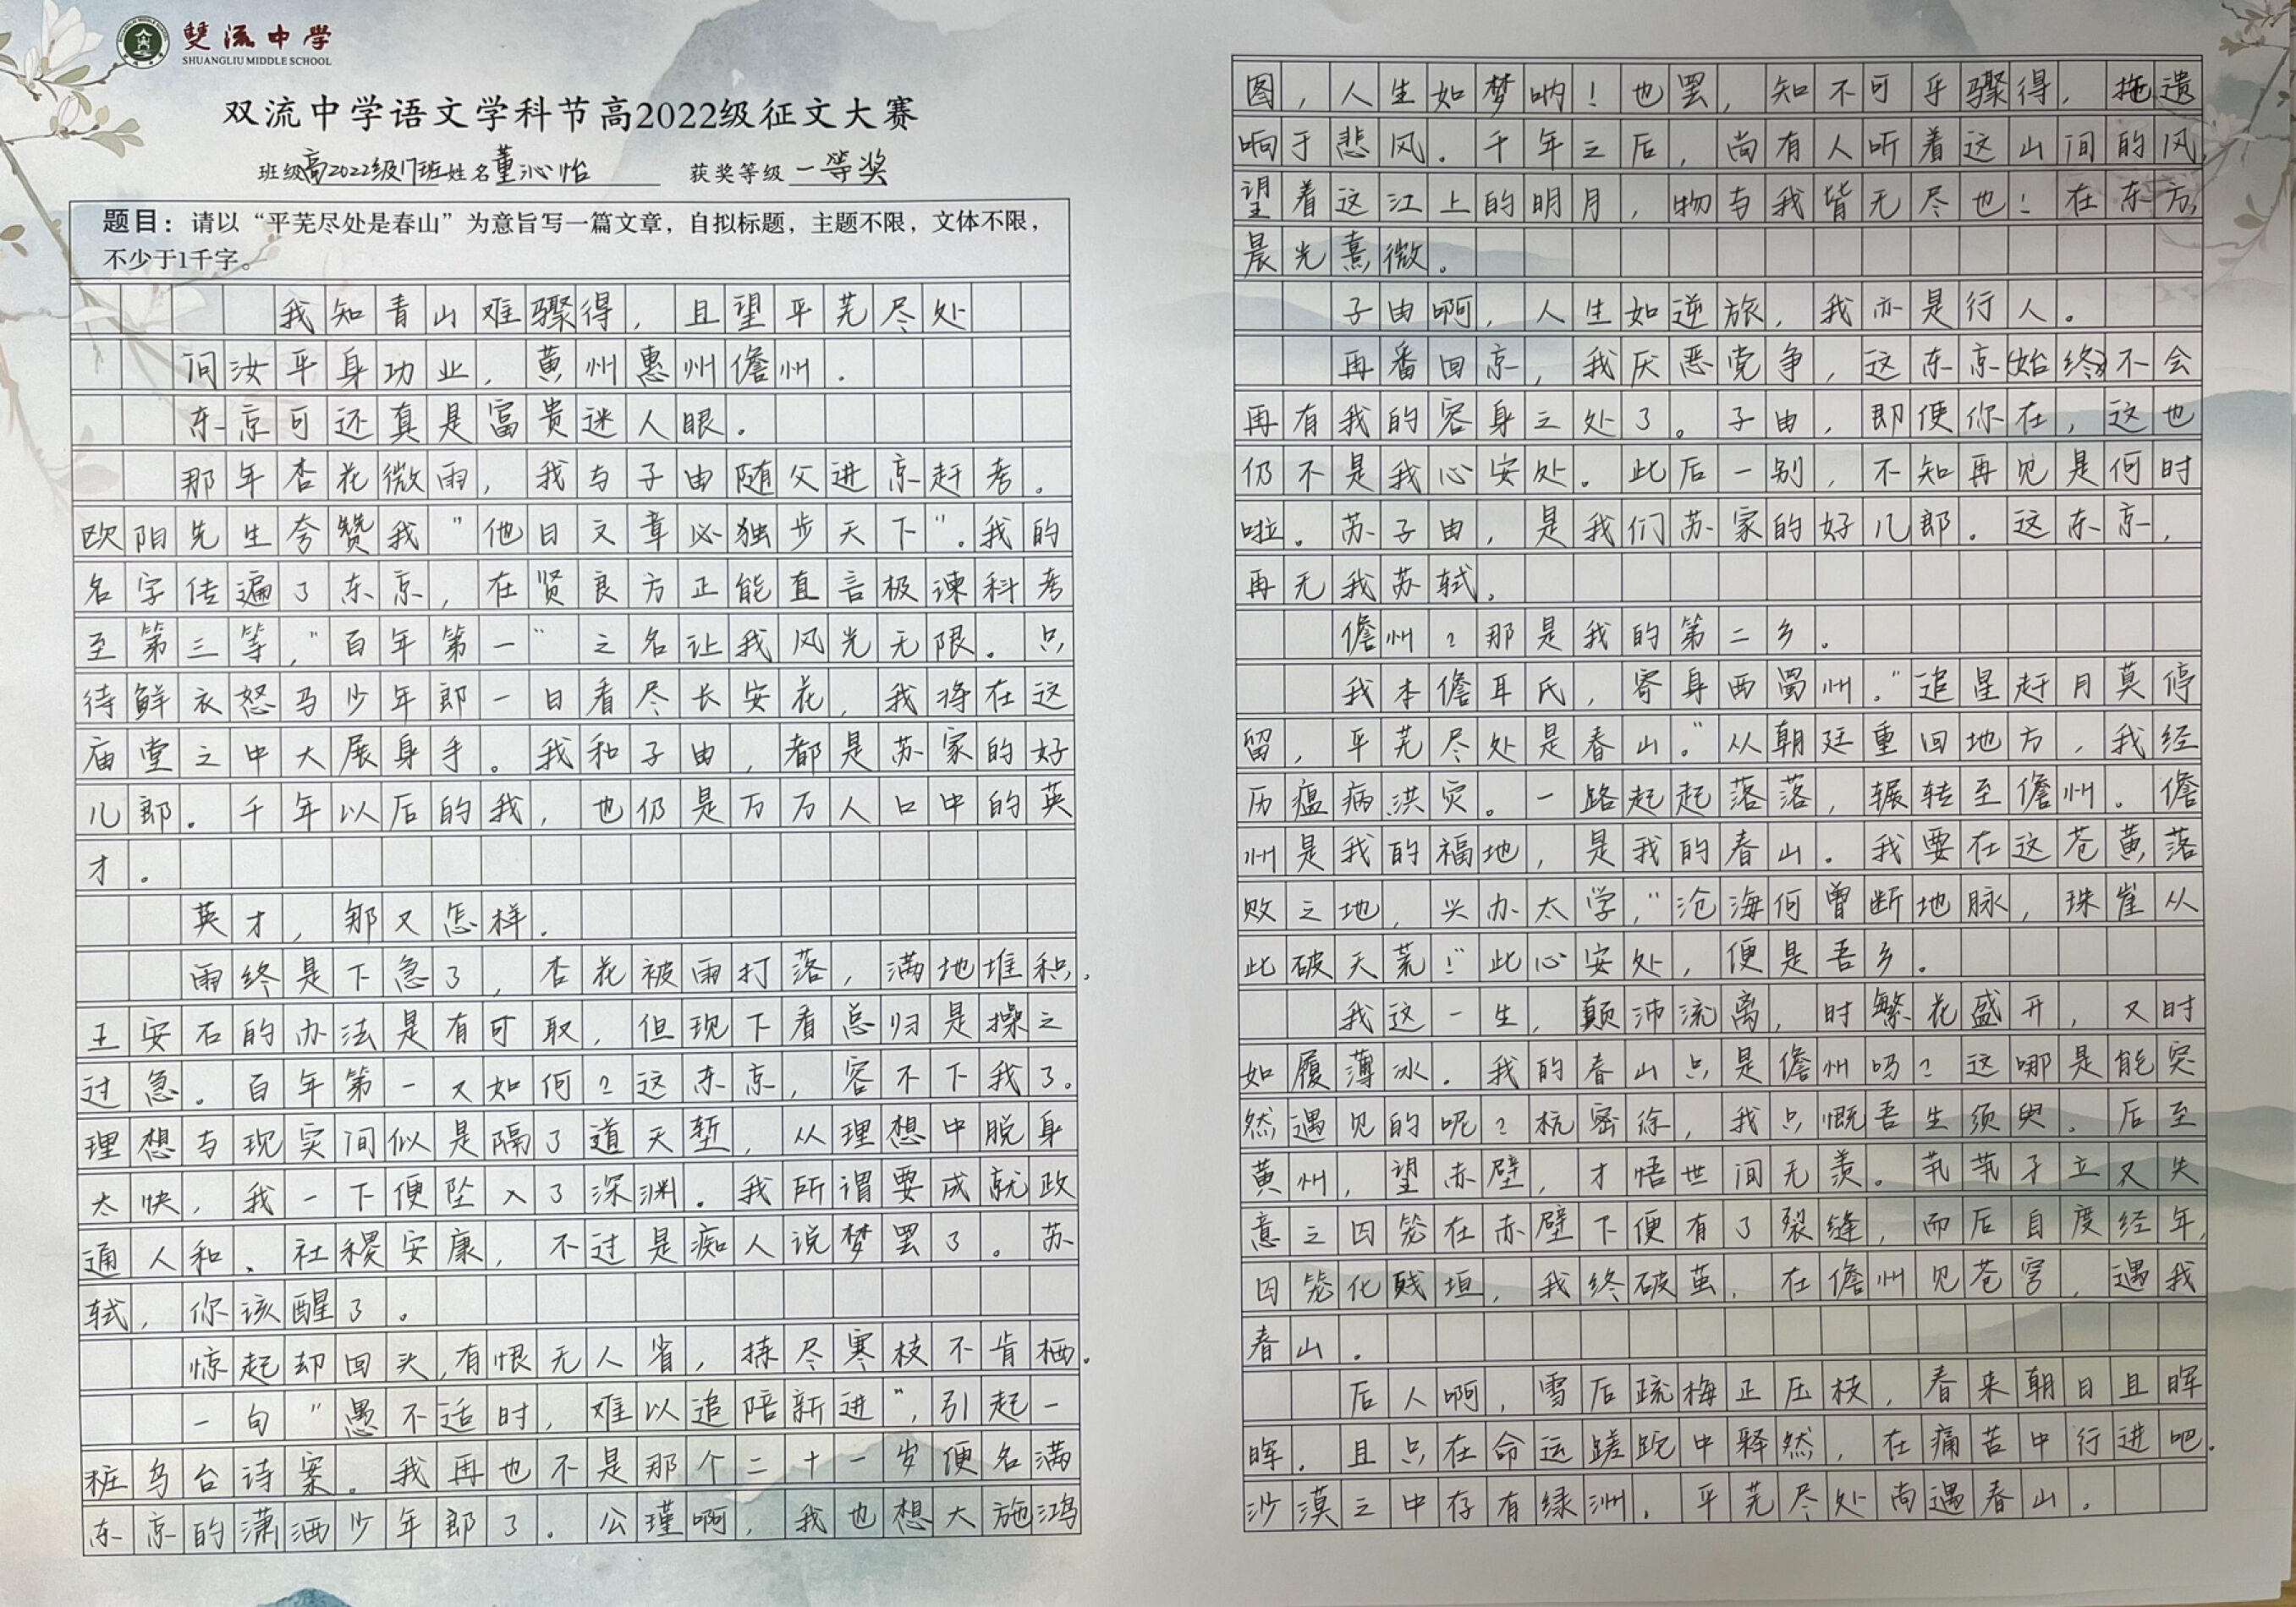 雙流中学
SHUANGLIU MIDDLE SCHOOL
双流中学语文学科节高2022级征文大赛
班级高2022级17班姓名董沁怡 获奖等级一等奖
题目：请以“平芜尽处是春山”为意旨写一篇文章，自拟标题，主题不限，文体不限，
不少于1千字。
我知青山难骤得，且望平芜尽处
问汝平身功业，黄州惠州儋州．
东京可还真是富贵迷人眼．
那年杏花微雨，我与子由随父进京赶考．
欧阳先生夸赞我“他日文章必独步天下”．我的
名字传遍了东京，在贤良方正能直言极谏科考
至第三等，“百年第一”之名让我风光无限．只
待鲜衣怒马少年郎一日看尽长安花，我将在这
庙堂之中大展身手。我和子由，都是苏家的好
儿郎．千年以后的我，也仍是万万人口中的英
才．
英才，那又怎样．
雨终是下急了，杏花被雨打落，满地堆积．
王安石的办法是有可取，但现下看总归是操之
过急．百年第一又如何？这东京，容不下我了。
理想与现实间似是隔了道天堑，从理想中脱身
太快，我一下便坠入了深渊．我所谓要成就政
通人和、社稷安康，不过是痴人说梦罢了。苏
轼，你该醒了。
惊起却回头，有恨无人省，拣尽寒枝不肯栖．
一句“愚不适时，难以追陪新进”，引起一
桩乌台诗案．我再也不是那个二十一岁便名满
东京的潇洒少年郎了．公瑾啊，我也想大施鸿
图，人生如梦呐！也罢，知不可乎骤得，拖遗
响于悲风．千年之后，尚有人听着这山间的风，
望着这江上的明月，物与我皆无尽也！在东方，
晨光熹微．
子由啊，人生如逆旅，我亦是行人．
再番回京，我厌恶党争，这东京(始终)不会
再有我的容身之处了。子由，即使你在，这也
仍不是我心安处．此后一别，不知再见是何时
啦．苏子由，是我们苏家的好儿郎．这东京，
再无我苏轼．
儋州？那是我的第二乡．
我本儋耳氏，寄身西蜀州．“追星赶月莫停
留，平芜尽处是春山．”从朝廷重回地方，我经
历瘟病洪灾。一路起起落落，辗转至儋州。儋
州是我的福地，是我的春山．我要在这苍黄落
败之地，兴办太学，“沧海何曾断地脉，珠崖从
此破天荒！”此心安处，便是吾乡．
我这一生，颠沛流离，时繁花盛开，又时
如履薄冰．我的春山只是儋州吗？这哪是能突
然遇见的呢？杭密徐，我只慨吾生须臾．后至
黄州，望赤壁，才悟世间无羡。茕茕孑立又失
意之囚笼在赤壁下便有了裂缝，而后自度经年，
囚笼化残垣，我终破茧，在儋州见苍穹，遇我
春山．
后人啊，雪后疏梅正压枝，春来朝日且晖
晖．且只在命运蹉跎中释然，在痛苦中行进吧．
沙漠之中存有绿洲，平芜尽处尚遇春山．